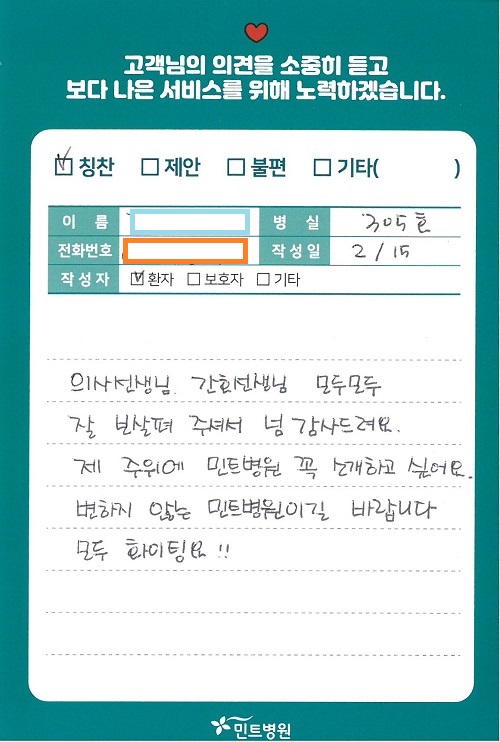 고객님의 의견을 소중히 듣고
보다 나은 서비스를 위해 노력하겠습니다.
칭찬 제안 불편 기타( )
이 름 병 실 305호
전화번호 작성일 2/15
작성자 환자 보호자 기타
의사선생님 간호선생님 모두모두
잘 보살펴 주셔서 넘 감사드려요.
제 주위에 민트병원 꼭 소개하고 싶어요.
변하지 않는 민트병원이길 바랍니다
모두 화이팅요!!
민트병원